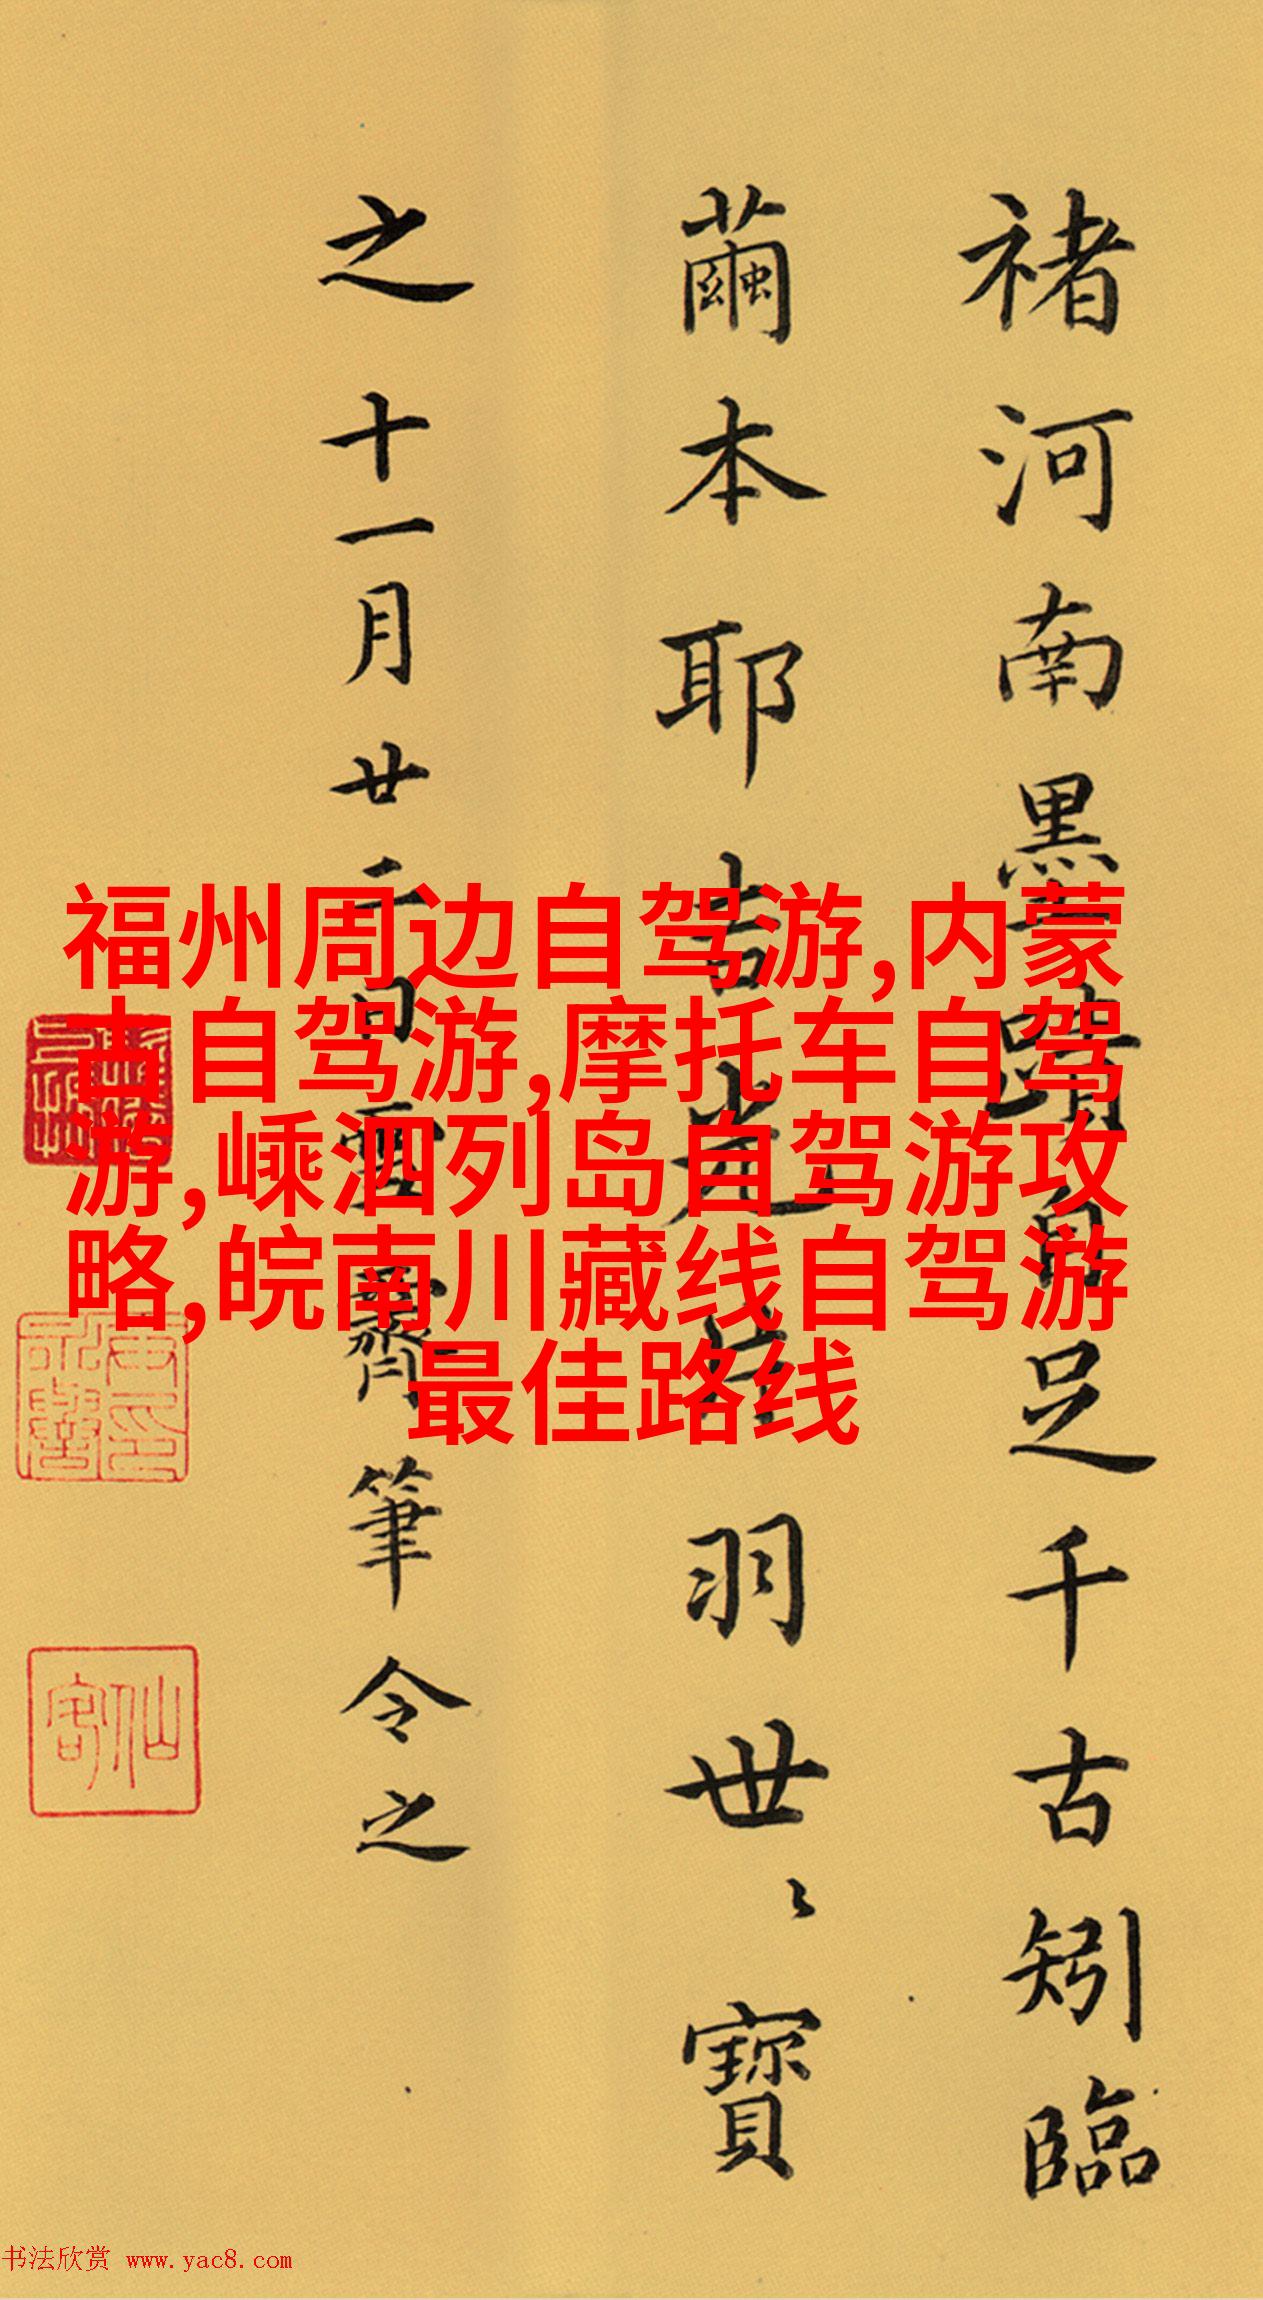 褚河南墨蹟自足千古矧臨
繭本耶吉光片羽世〻寶
之十一月廿二日雪霽筆令之
福州周边自驾游,内蒙
古自驾游,摩托车自驾
游,嵊泗列岛自驾游攻
略,皖南川藏线自驾游
最佳路线
仙客
书法欣赏 www.yac8.com